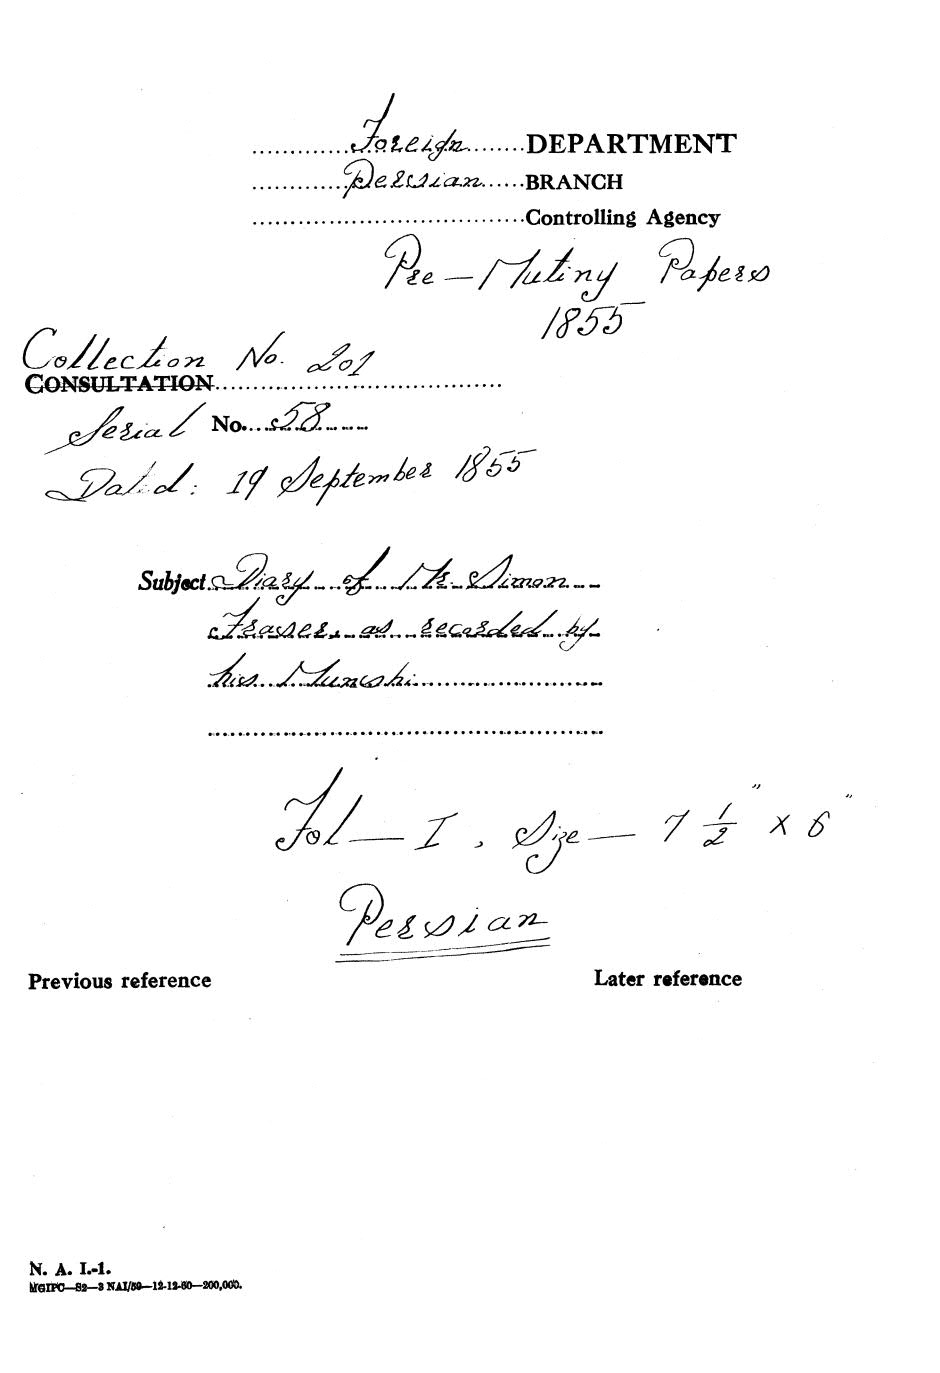 Foreign DEPARTMENT
Persian BRANCH
Controlling Agency
Pre-Mutiny Papers
1855
Collection No. 201
CONSULTATION
Serial No. 58
Dated: 19 September 1855
Subject Diary of Mr Simon
Fraser as recorded by
his Munshi
Fol - I, Size - 7 1/2" x 6"
Persian
Previous reference Later reference
N. A. I.-1.
MGIPC—S2—3 NAI/59—12-12-60—200,000.